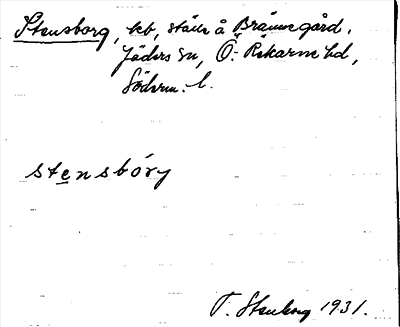 Stensborg, kb, ställe å Bränne gård,
Jäders sn, Ö. Rekarne hd,
Söderm. l.
stensbóry
T. Stenborg 1931.